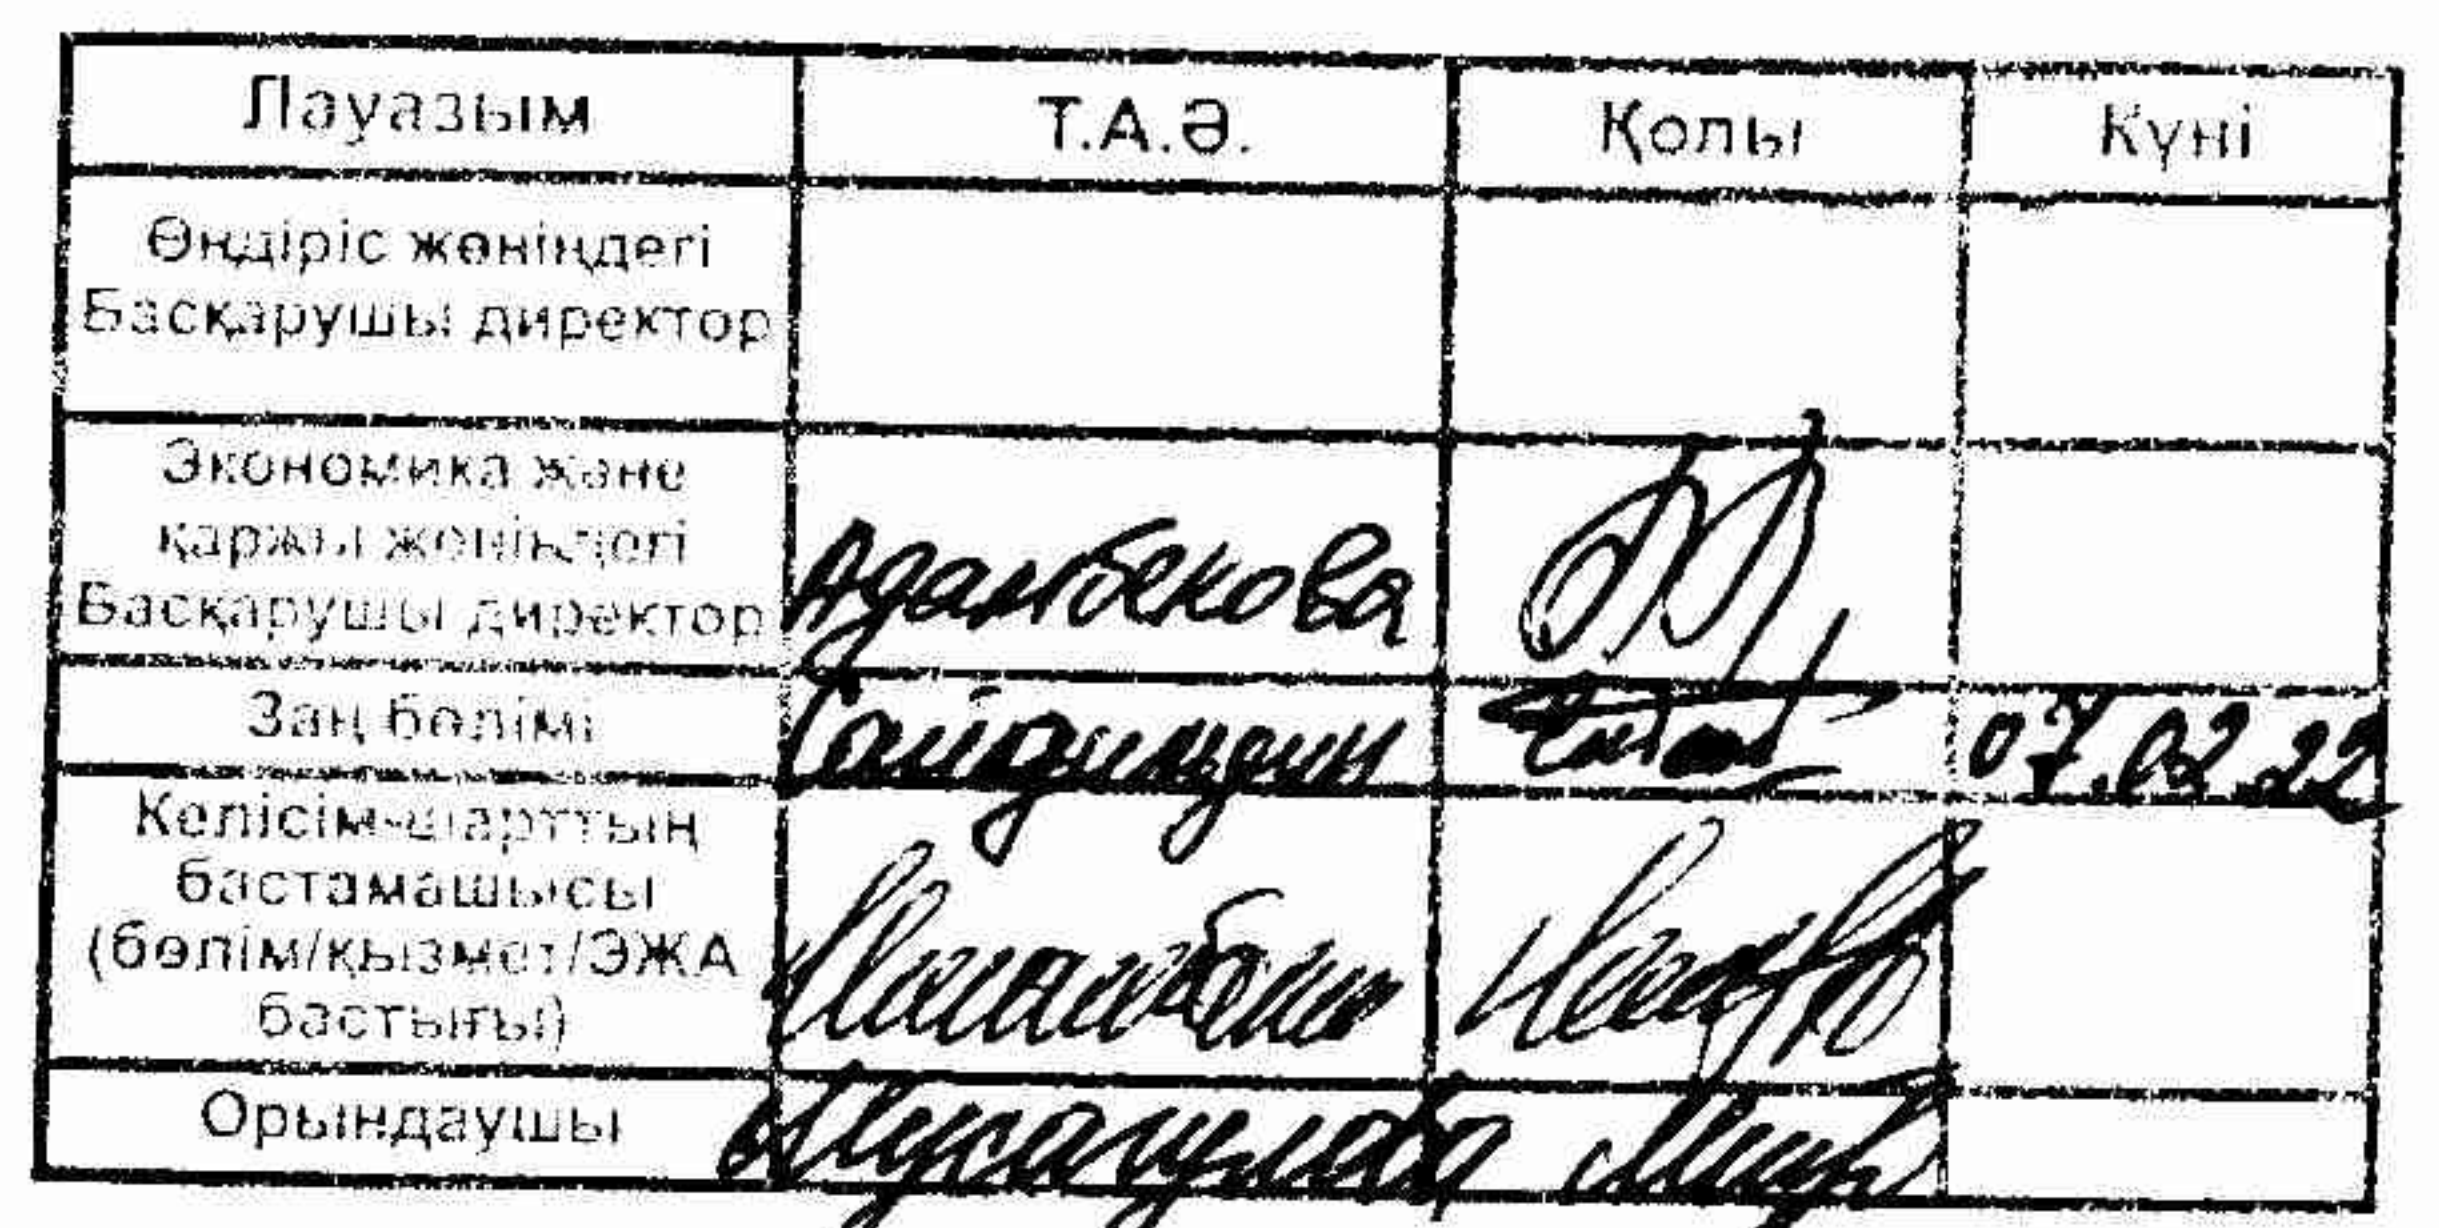 Лауазым Т.А.Ә. Қолы Күні
Өндіріс жөніндегі
Басқарушы директор
Экономика және
қаржы жөніндегі
Басқарушы директор Адамбекова
Заң бөлімі 07.02.22
Келісім-шарттың
бастамашысы
(бөлім/қызмет/ЭЖА
бастығы)
Орындаушы Мусагулова